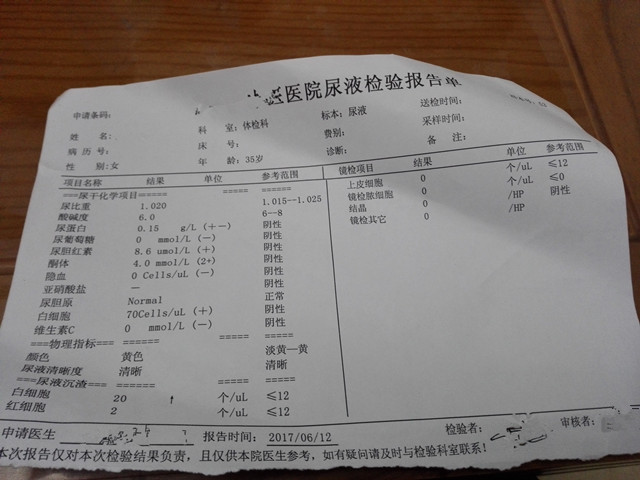 医院尿液检验报告单
申请条码：
姓 名：
科 室：体检科
标本：尿液
送检时间：
病历号：
床 号：
费别：
采样时间：
性 别：女
年 龄：35岁
诊断：
备 注：
项目名称 结果 单位 参考范围
===尿干化学项目====== ===== ======
尿比重 1.020 1.015--1.025
酸碱度 6.0 6--8
尿蛋白 0.15 g/L (+-) 阴性
尿葡萄糖 0 mmol/L (—) 阴性
尿胆红素 8.6 umol/L (+) 阴性
酮体 4.0 mmol/L (2+) 阴性
隐血 0 Cells/uL (—) 阴性
亚硝酸盐 — 阴性
尿胆原 Normal 正常
白细胞 70Cells/uL (+) 阴性
维生素C 0 mmol/L (—) 阴性
===物理指标=== ====== ===== =====
颜色 黄色 淡黄—黄
尿液清晰度 清晰 清晰
===尿液沉渣=== ====== ===== =====
白细胞 20 ↑ 个/uL ≤12
红细胞 2 个/uL ≤12
镜检项目 结果 单位 参考范围
上皮细胞 0 个/uL ≤12
镜检脓细胞 0 个/uL ≤0
结晶 0 /HP 阴性
镜检其它 0 /HP
申请医生
报告时间：2017/06/12
检验者：
审核者：
本次报告仅对本次检验结果负责，且仅供本院医生参考，如有疑问请及时与检验科室联系！